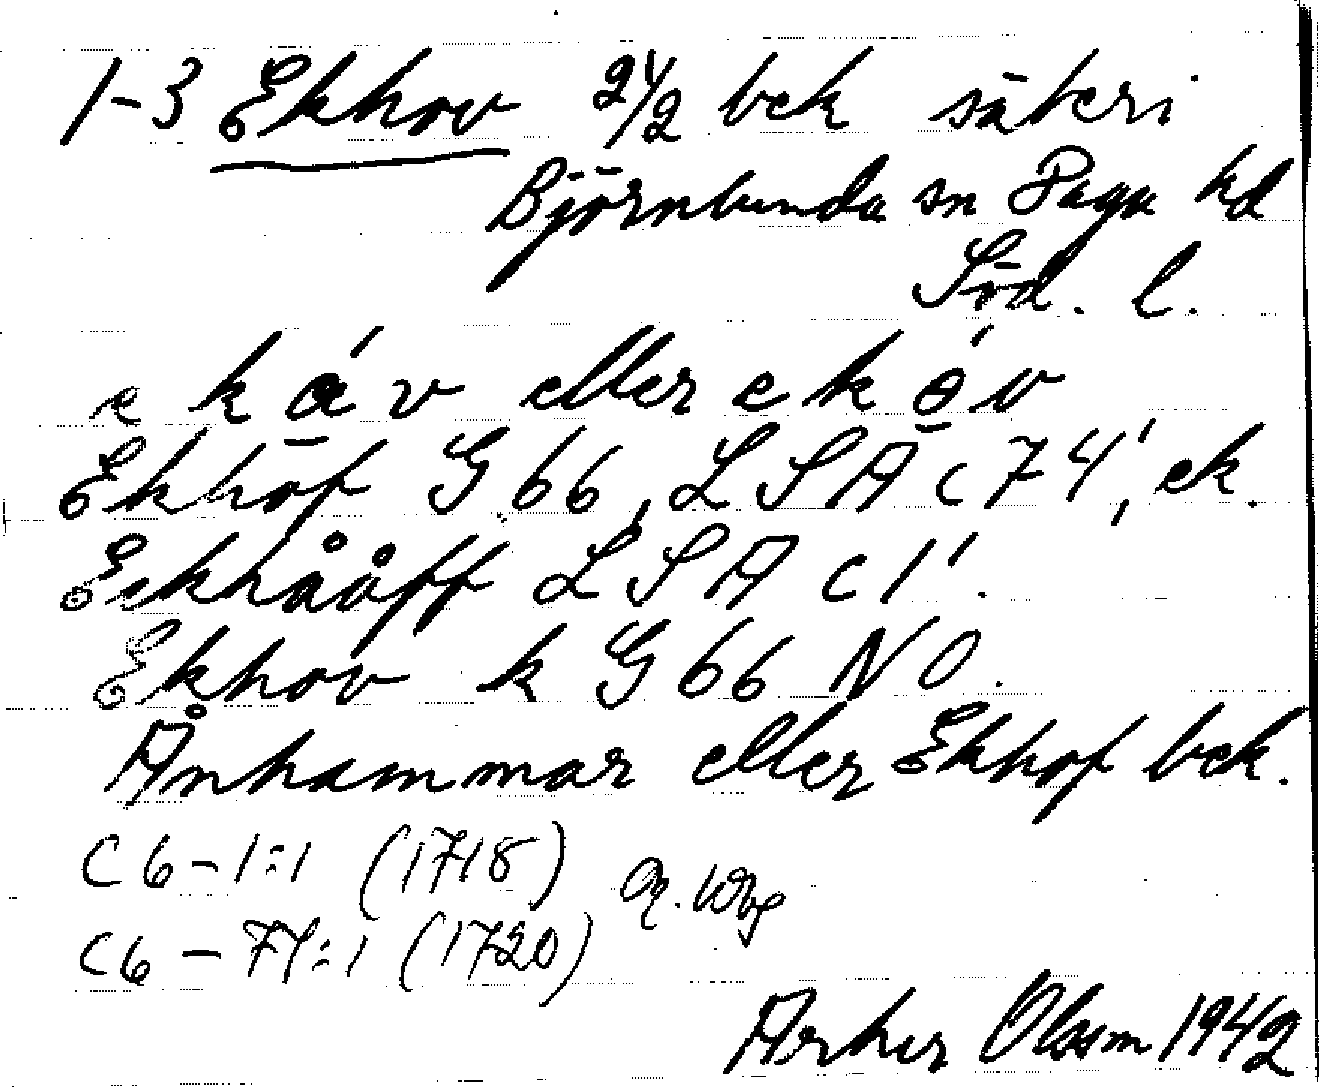 1-3 Ekhov 2 1/2 bek säteri
Björnlunda sn Daga hd
Söd. l.
e k á v eller e k ó v
Ekhof G 66, LSA C 74', ek.
Eckhååff LSA C 1'.
Ekhov k G 66 NO.
Ånhammar eller Ekhof bek.
C6-1:1 (1718)
C6-71:1 (1720)
Arthur Olsson 1942